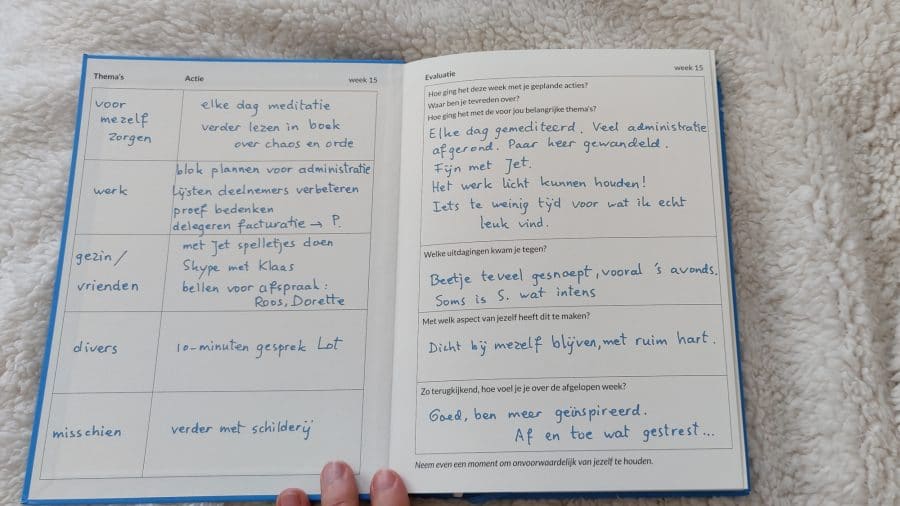 Thema's Actie week 15
voor
mezelf
zorgen
elke dag meditatie
verder lezen in boek
over chaos en orde
werk
blok plannen voor administratie
Lijsten deelnemers verbeteren
proef bedenken
delegeren facturatie → P.
gezin/
vrienden
met Jet spelletjes doen
Skype met Klaas
bellen voor afspraak:
Roos, Dorette
divers
10-minuten gesprek Lot
misschien
verder met schilderij
Evaluatie week 15
Hoe ging het deze week met je geplande acties?
Waar ben je tevreden over?
Hoe ging het met de voor jou belangrijke thema's?
Elke dag gemediteerd. Veel administratie
afgerond. Paar keer gewandeld.
Fijn met Jet.
Het werk licht kunnen houden!
Iets te weinig tijd voor wat ik echt
leuk vind.
Welke uitdagingen kwam je tegen?
Beetje teveel gesnoept, vooral 's avonds.
Soms is S. wat intens
Met welk aspect van jezelf heeft dit te maken?
Dicht bij mezelf blijven, met ruim hart.
Zo terugkijkend, hoe voel je je over de afgelopen week?
Goed, ben meer geïnspireerd.
Af en toe wat gestrest...
Neem even een moment om onvoorwaardelijk van jezelf te houden.